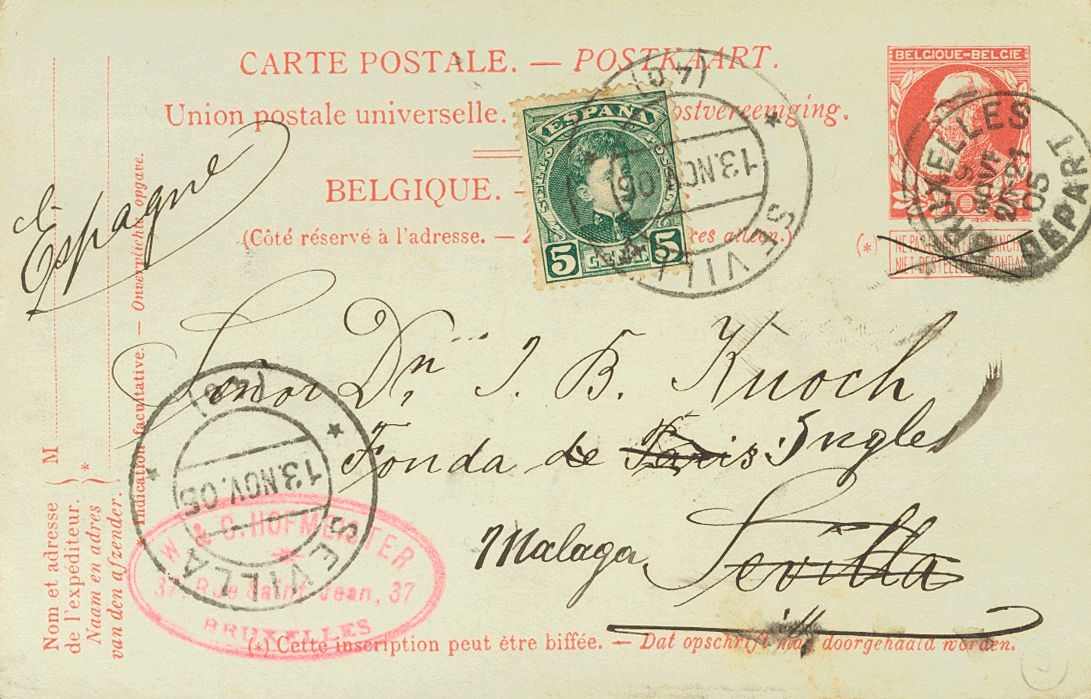 CARTE POSTALE. — POSTKAART.
Union postale universelle. postvereeniging.
BELGIQUE.
(Côté réservé à l'adresse. — alleen.)
ESPAÑA
5 5
SEVILLA
13.NOV.05
BELGIQUE-BELGIE
BRUXELLES
NOVE
05
DÉPART
(*)
NIET BESTELLEN ZONDAG
Espagne
Señor Dn J. B. Knoch
Fonda de Paris Ingles
Malaga Sevilla
SEVILLA
13.NOV.05
W & C. HOFMEISTER
37, Rue Saint-Jean, 37
BRUXELLES
M
Nom et adresse
de l'expéditeur.
Naam en adres
van den afzender.
*
Indication facultative. — Onverplichte opgave.
(*) Cette inscription peut être biffée. — Dat opschrift mag doorgehaald worden.